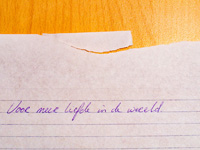 Voor meer liefde in de wereld.